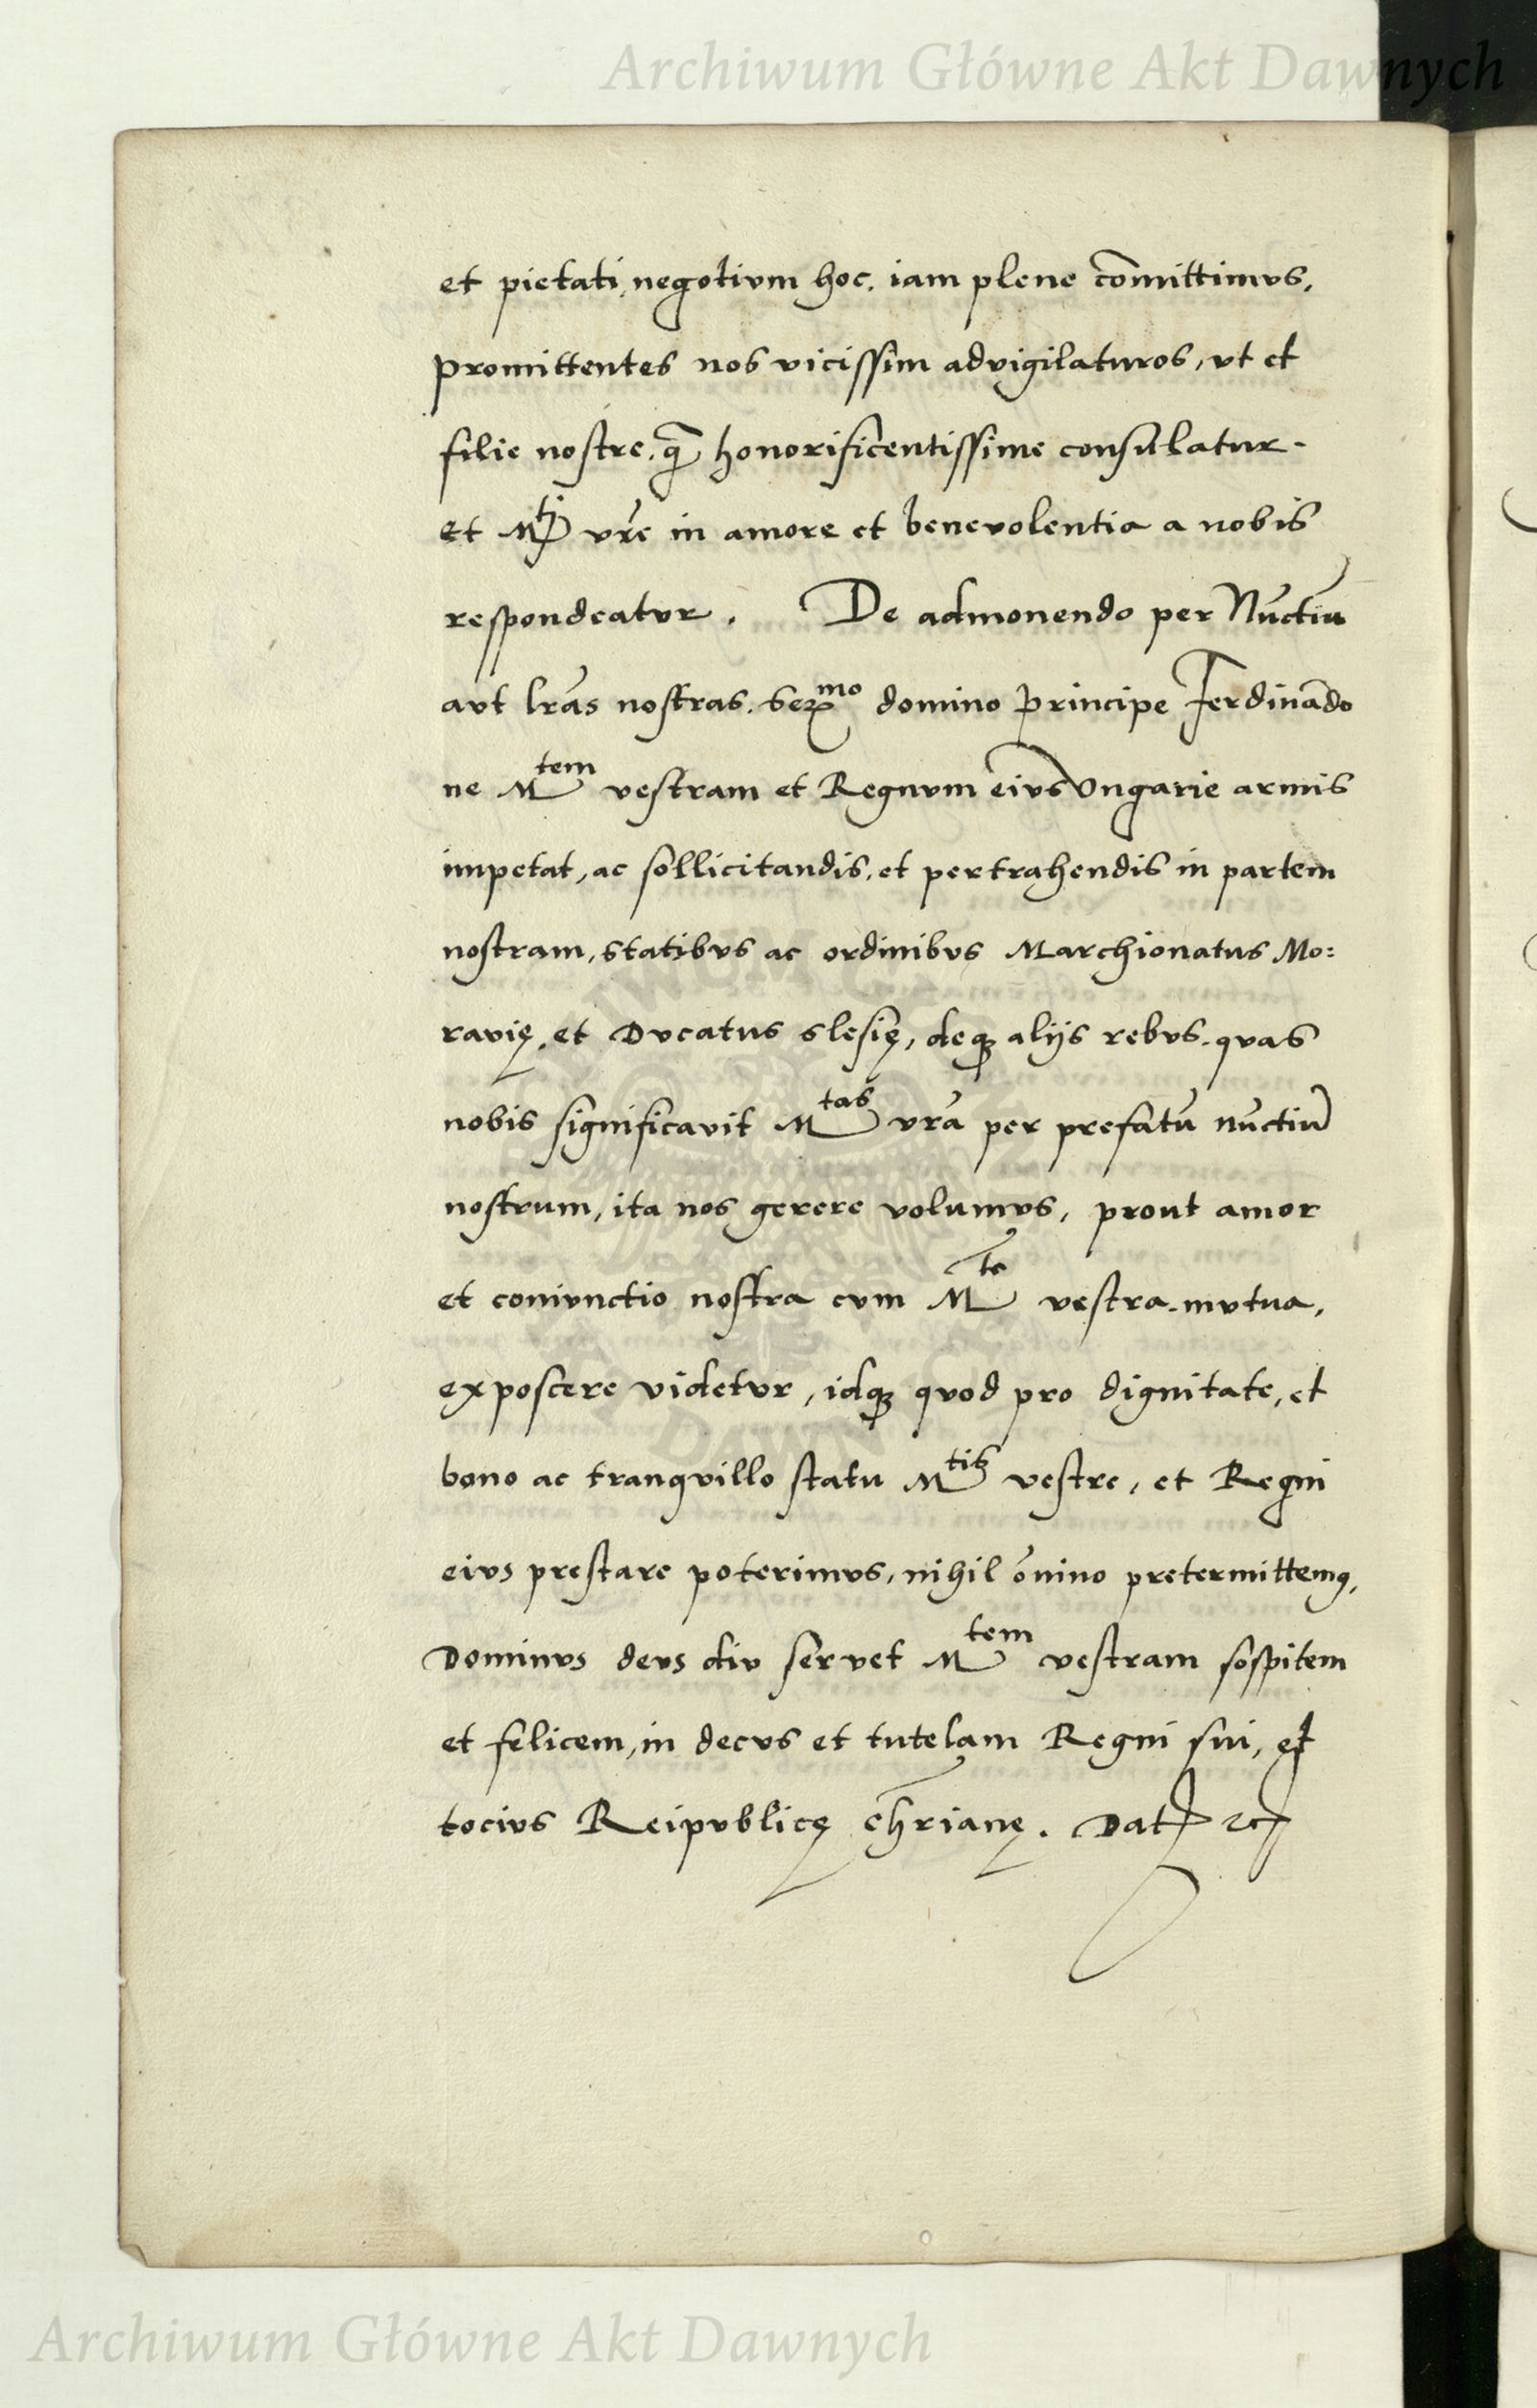 Archiwum Główne Akt Dawnych
et pietati, negotivm hoc, iam plene com̄ittimvs,
promittentes nos vicissim advigilaturos, vt et
filie nostre, q̄ honorificentissime consulatur.
et Mti vr̄e in amore et benevolentia a nobis
respondeatvr. De admonendo per Nūctiū
avt lr̄as nostras. Sermo domino principe Ferdinādo
ne Mtem vestram et Regnvm eivs Vngarie armis
impetat, ac sollicitandis, et pertrahendis in partem
nostram, statibvs ac ordinibvs Marchionatus Mo:
ravię, et Dvcatus slesię, deqꝫ alijs rebvs, qvas
nobis significavit Mtas vr̄a per prefatū nūctiū
nostrum, ita nos gerere volumvs, prout amor
et conivnctio nostra cvm Mte vestra mvtua,
exposcere videtvr, idqꝫ qvod pro dignitate, et
bono ac tranqvillo statu Mtis vestre, et Regni
eivs prestare poterimvs, nihil ōnino pretermittemꝯ,
Dominvs devs div servet Mtem vestram sospitem
et felicem, in decvs et tutelam Regni sui, et
tocivs Reipvblicę chr̄ianę. Dat ꝛc
Archiwum Główne Akt Dawnych